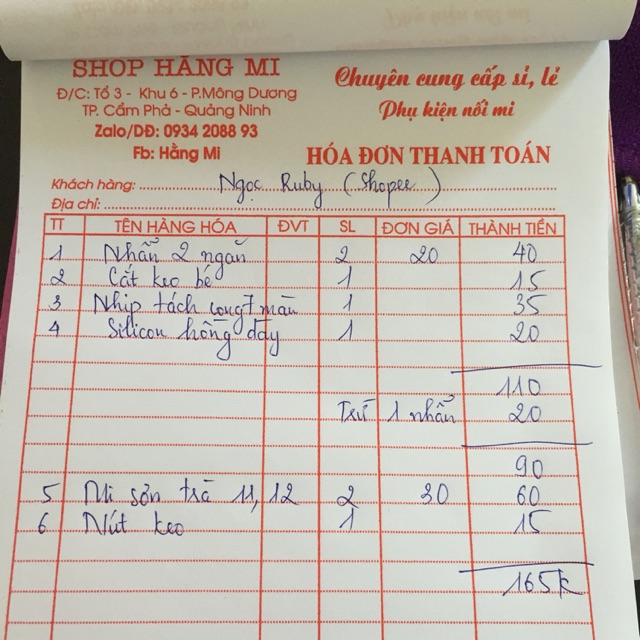 SHOP HẰNG MI
Đ/C: Tổ 3 - Khu 6 - P.Mông Dương
TP. Cẩm Phả - Quảng Ninh
Zalo/DĐ: 0934 2088 93
Fb: Hằng Mi
Chuyên cung cấp sỉ, lẻ
Phụ kiện nối mi
HÓA ĐƠN THANH TOÁN
Khách hàng: Ngọc Ruby (Shopee)
Địa chỉ:
TT TÊN HÀNG HÓA ĐVT SL ĐƠN GIÁ THÀNH TIỀN
1 Nhẫn 2 ngăn 2 20 40
2 Cắt keo bé 1 15
3 Nhíp tách cong 7 màu 1 35
4 Silicon hồng dày 1 20
110
Trừ 1 nhẫn 20
90
5 Mi sơn trà 11, 12 2 30 60
6 Nút keo 1 15
165k